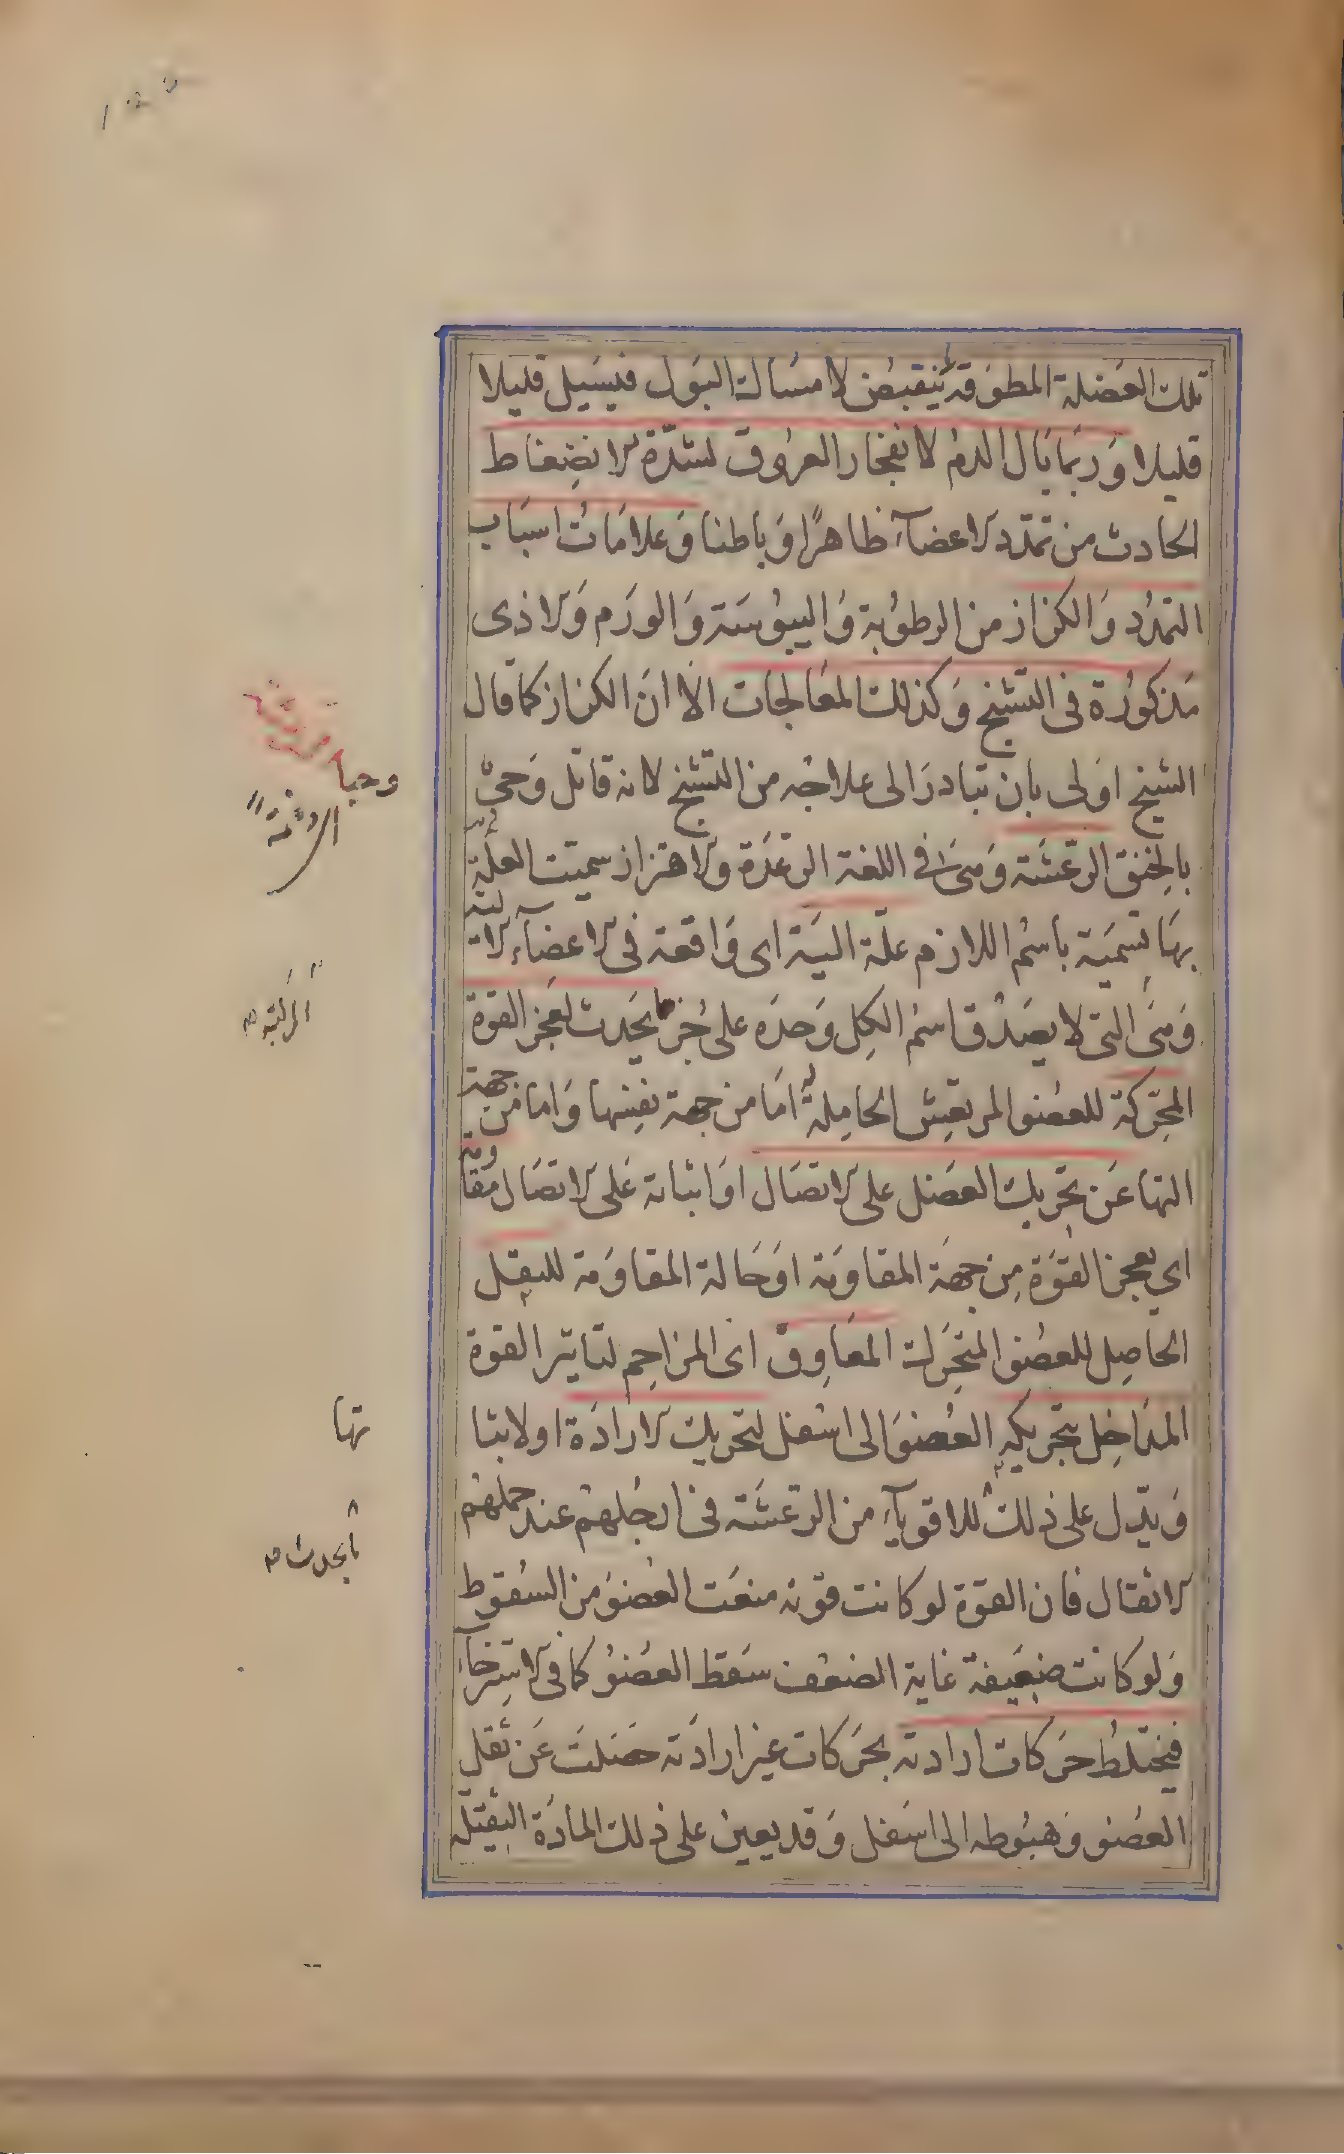 تلك العضلة المطوقة ينقبض لامساك البول فيسيل قليلا
قليلا وربما بال الدم لانفجار العروق لشدة الانضغاط
الحادث من تمدد الاعضآء ظاهرا وباطنا وعلامات اسباب
التمدد والكزاز من الرطوبة واليبوسة والورم والاذى
مذكورة فى التشنج وكذلك المعالجات الا ان الكزاز كما قال
الشيخ اولى بان تبادر الى علاجه من التشنج لانه قاتل وحى
بالخنق الرعشة وهى فى اللغة الرعدة والاهتزاز سميت العلة
بها تسمية باسم اللازم علة الية اى واقعة فى الاعضآء الالية
وهى التى لا يصدق اسم الكل وحده على جز يحدث لعجز القوة
المحركة للعضو المرتعش الحاملة له اما من جهة نفسها واما من جهة
التها عن تحريك العضل على الاتصال او اثباته على الاتصال مقاومة
اى بعجز القوة من جهة المقاومة او حالة المقاومة للثقل
الحاصل للعضو المتحرك المعاوق اى المزاحم لتاثير القوة
المداخل بتحريكه العضو الى اسفل لتحريك الارادة او لاثبا
ويدل على ذلك للاقويآء من الرعشة فى ارجلهم عند حملهم
الاثقال فان القوة لو كانت قوية منعت العضو من السقوط
ولو كانت ضعيفة غاية الضعف سقط العضو كما فى الاسترخآء
فيختلط حركات ارادية بحركات غير ارادية حصلت عن ثقل
العضو وهبوطه الى اسفل وقد يعين على ذلك المادة الثقيلة
وحيا
المركبة
تها
ما يحدث